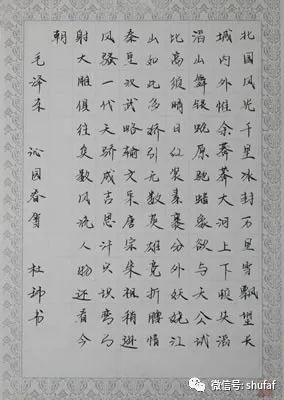 北国风光千里冰封万里雪飘望长
城内外惟余莽莽大河上下顿失滔
滔山舞银蛇原驰蜡象欲与天公试
比高须晴日红装素裹分外妖娆江
山如此多娇引无数英雄竞折腰惜
秦皇汉武略输文采唐宗宋祖稍逊
风骚一代天骄成吉思汗只识弯弓
射大雕俱往矣数风流人物还看今
朝
毛泽东 沁园春雪 杜 书
微信号: shufaf